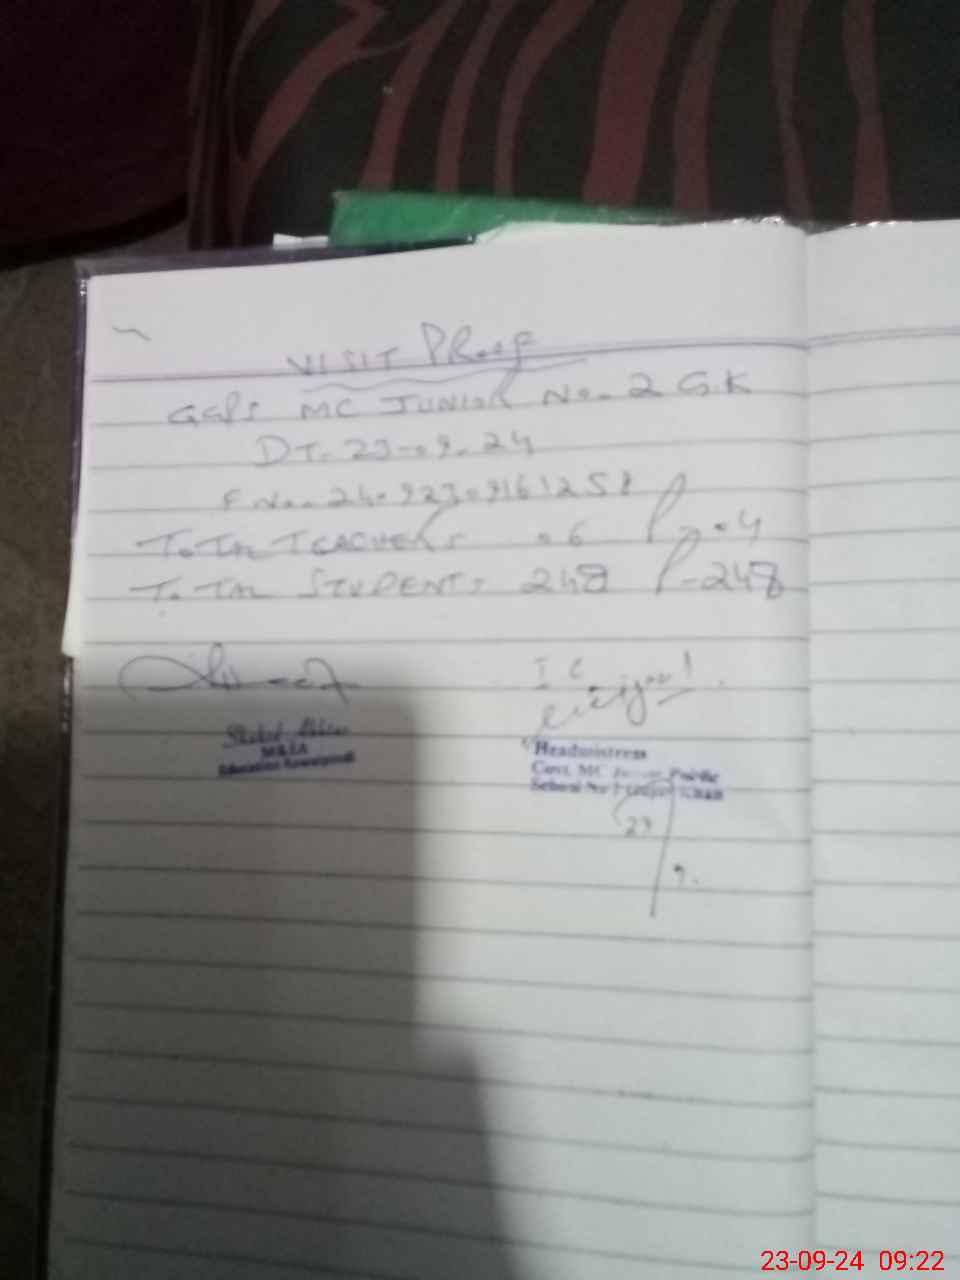 VISIT PRoof
GGPS MC JUNIOR No. 2 G.K
DT. 23-09-24
F No. 24092309161258
ToTAL TEACHERS 06 P-04
ToTAL STUDENTS 248 P-248
I C
M&EA
Education Rawalpindi
Headmistress
Govt. MC Public
School No
23
9.
23-09-24 09:22